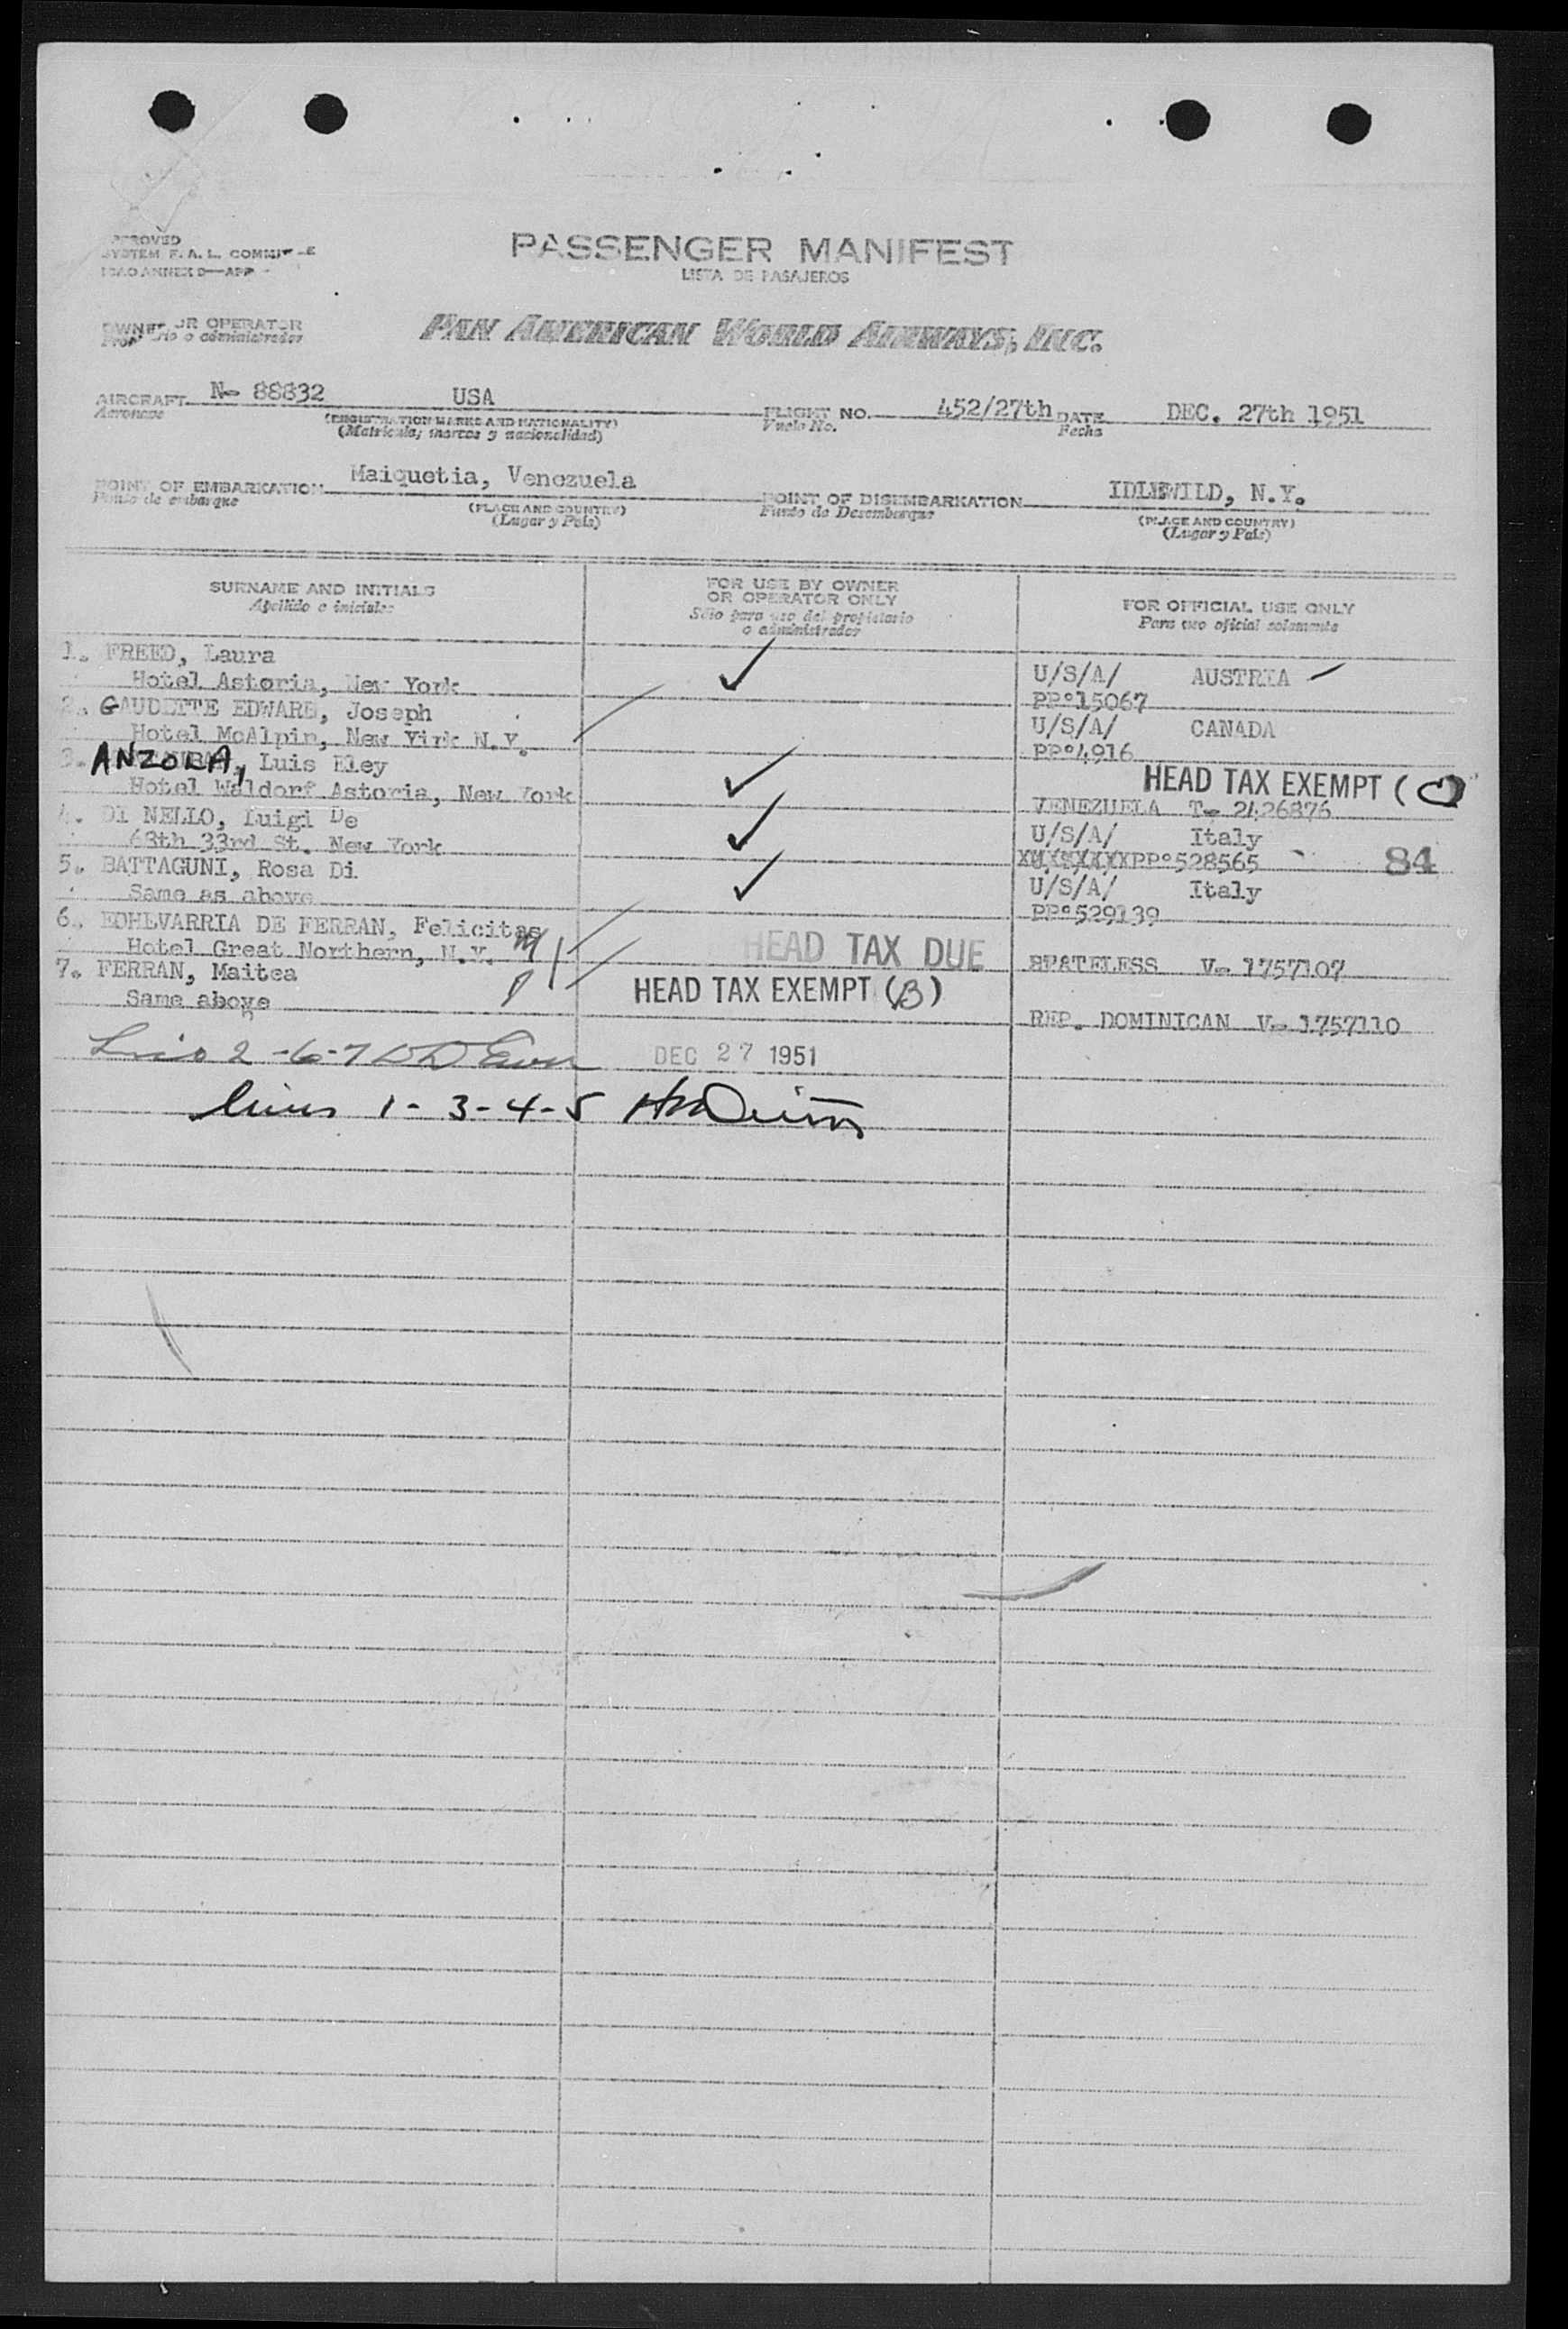 SYSTEM F. A. L. COMMITTEE
ICAO ANNEX 9—APP
PASSENGER MANIFEST
LISTA DE PASAJEROS
OWNER OR OPERATOR
PAN AMERICAN WORLD AIRWAYS, INC.
o administrador
AIRCRAFT N- 88832 USA
Aeronave
(REGISTRATION MARKS AND NATIONALITY)
(Matricula, marcas y nacionalidad)
FLIGHT NO. 452/27th DATE DEC. 27th 1951
Vuelo No. Fecha
POINT OF EMBARKATION Maiquetia, Venezuela
Punto de embarque
(PLACE AND COUNTRY)
(Lugar y País)
POINT OF DISEMBARKATION IDLEWILD, N.Y.
Punto de Desembarque
(PLACE AND COUNTRY)
(Lugar y País)
SURNAME AND INITIALS
Apellido e iniciales
FOR USE BY OWNER
OR OPERATOR ONLY
Sólo para uso del propietario
o administrador
FOR OFFICIAL USE ONLY
Para uso oficial solamente
1. FREED, Laura
Hotel Astoria, New York
U/S/A/ AUSTRIA
PP°15067
2. GAUDETTE EDWARD, Joseph
Hotel McAlpin, New Yirk N.Y.
U/S/A/ CANADA
PP°4916
3. ANZOLA, Luis Eley
Hotel Waldorf Astoria, New York
HEAD TAX EXEMPT (C)
VENEZUELA T- 2426876
4. DI NELLO, Luigi De
68th 33rd St. New York
U/S/A/ Italy
PP°528565 84
5. BATTAGUNI, Rosa Di
Same as above
U/S/A/ Italy
PP°529139
6. ECHEVARRIA DE FERRAN, Felicitas
Hotel Great Northern, N.Y. M
HEAD TAX DUE
STATELESS V- 1757107
7. FERRAN, Maitea
Same above
HEAD TAX EXEMPT (B)
REP. DOMINICAN V- 1757110
2-6-7
DEC 27 1951
lines 1-3-4-5